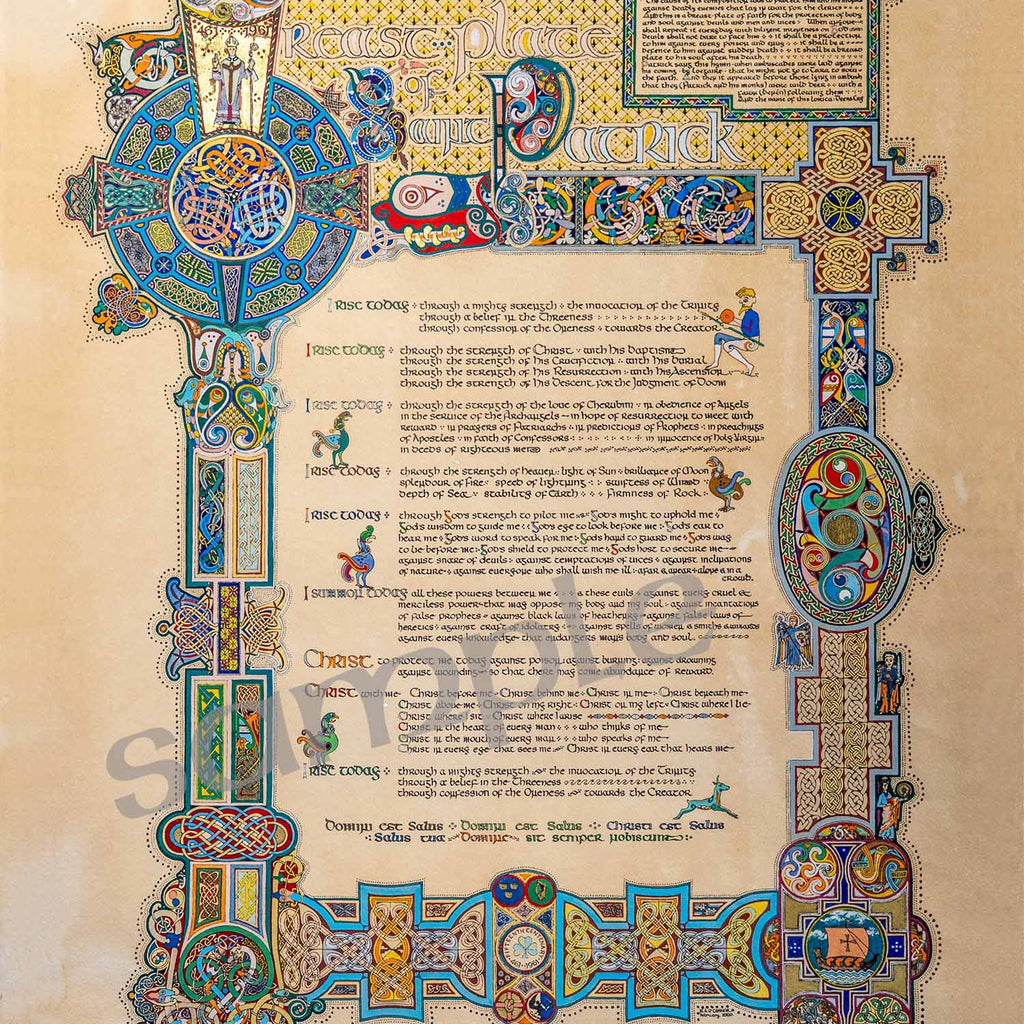 461 1961
Breast plate
of
Saint Patrick
The cause of its composition was to protect him and his monks
against deadly enemies that lay in wait for the clerics
And this is a breast-plate of faith for the protection of body
and soul against devils and men and vices When anyone
shall repeat it every day with diligent intentness on God
devils shall not dare to face him it shall be a protection
to him against every poison and envy it shall be a
defence to him against sudden death it shall be a breast
plate to his soul after his death.
Patrick says this hymn when ambuscades were laid against
his coming by Loegaire that he might not go to Tara to sow
the faith. And they it appeared before those lying in ambush
that they (Patrick and his monks) were wild deer with a
fawn following them
And the name of this Lorica
I RISE TODAY through a mighty strength the invocation of the Trinity
through a belief in the Threeness
through confession of the Oneness towards the Creator
I RISE TODAY through the strength of Christ with his baptism
through the strength of his Crucifiction with his burial
through the strength of his Resurrection with his Ascension
through the strength of his Descent for the Judgment of Doom
I RISE TODAY through the strength of the love of Cherubim in obedience of Angels
in the service of the Archangels in hope of resurrection to meet with
reward in prayers of Patriarchs in predictions of Prophets in preachings
of Apostles in faith of Confessors in innocence of Holy Virgins
in deeds of righteous men
I RISE TODAY through the strength of heaven: light of Sun brilliance of Moon
splendour of fire speed of lightning swiftness of Wind
depth of Sea stability of Earth Firmness of Rock
I RISE TODAY through God's strength to pilot me God's might to uphold me
God's wisdom to guide me God's eye to look before me God's ear to
hear me God's word to speak for me God's hand to guard me God's way
to lie before me God's shield to protect me God's host to secure me
against snare of devils against temptations of vices against inclinations
of nature against everyone who shall wish me ill afar & anear alone & in a
crowd.
I SUMMON TODAY all these powers between me & these evils against every cruel &
merciless power that may oppose my body and my soul against incantations
of false prophets against black laws of heathenry against false laws of
heretics against craft of idolatry against spells of women & smiths & wizards
against every knowledge that endangers man's body and soul.
Christ to protect me today against poison, against burning, against drowning
against wounding so that there may come abundance of reward.
Christ with me Christ before me Christ behind me Christ in me Christ beneath me
Christ above me Christ on my right Christ on my left Christ where I lie
Christ where I sit Christ where I arise
Christ in the heart of every man who thinks of me
Christ in the mouth of every man who speaks of me
Christ in every eye that sees me Christ in every ear that hears me
I RISE TODAY through a mighty strength the invocation of the Trinity
through a belief in the Threeness
through confession of the Oneness towards the Creator
Domini est Salus Domini est Salus Christi est Salus
Salus tua Domine sit semper nobiscum
sample
461-1961